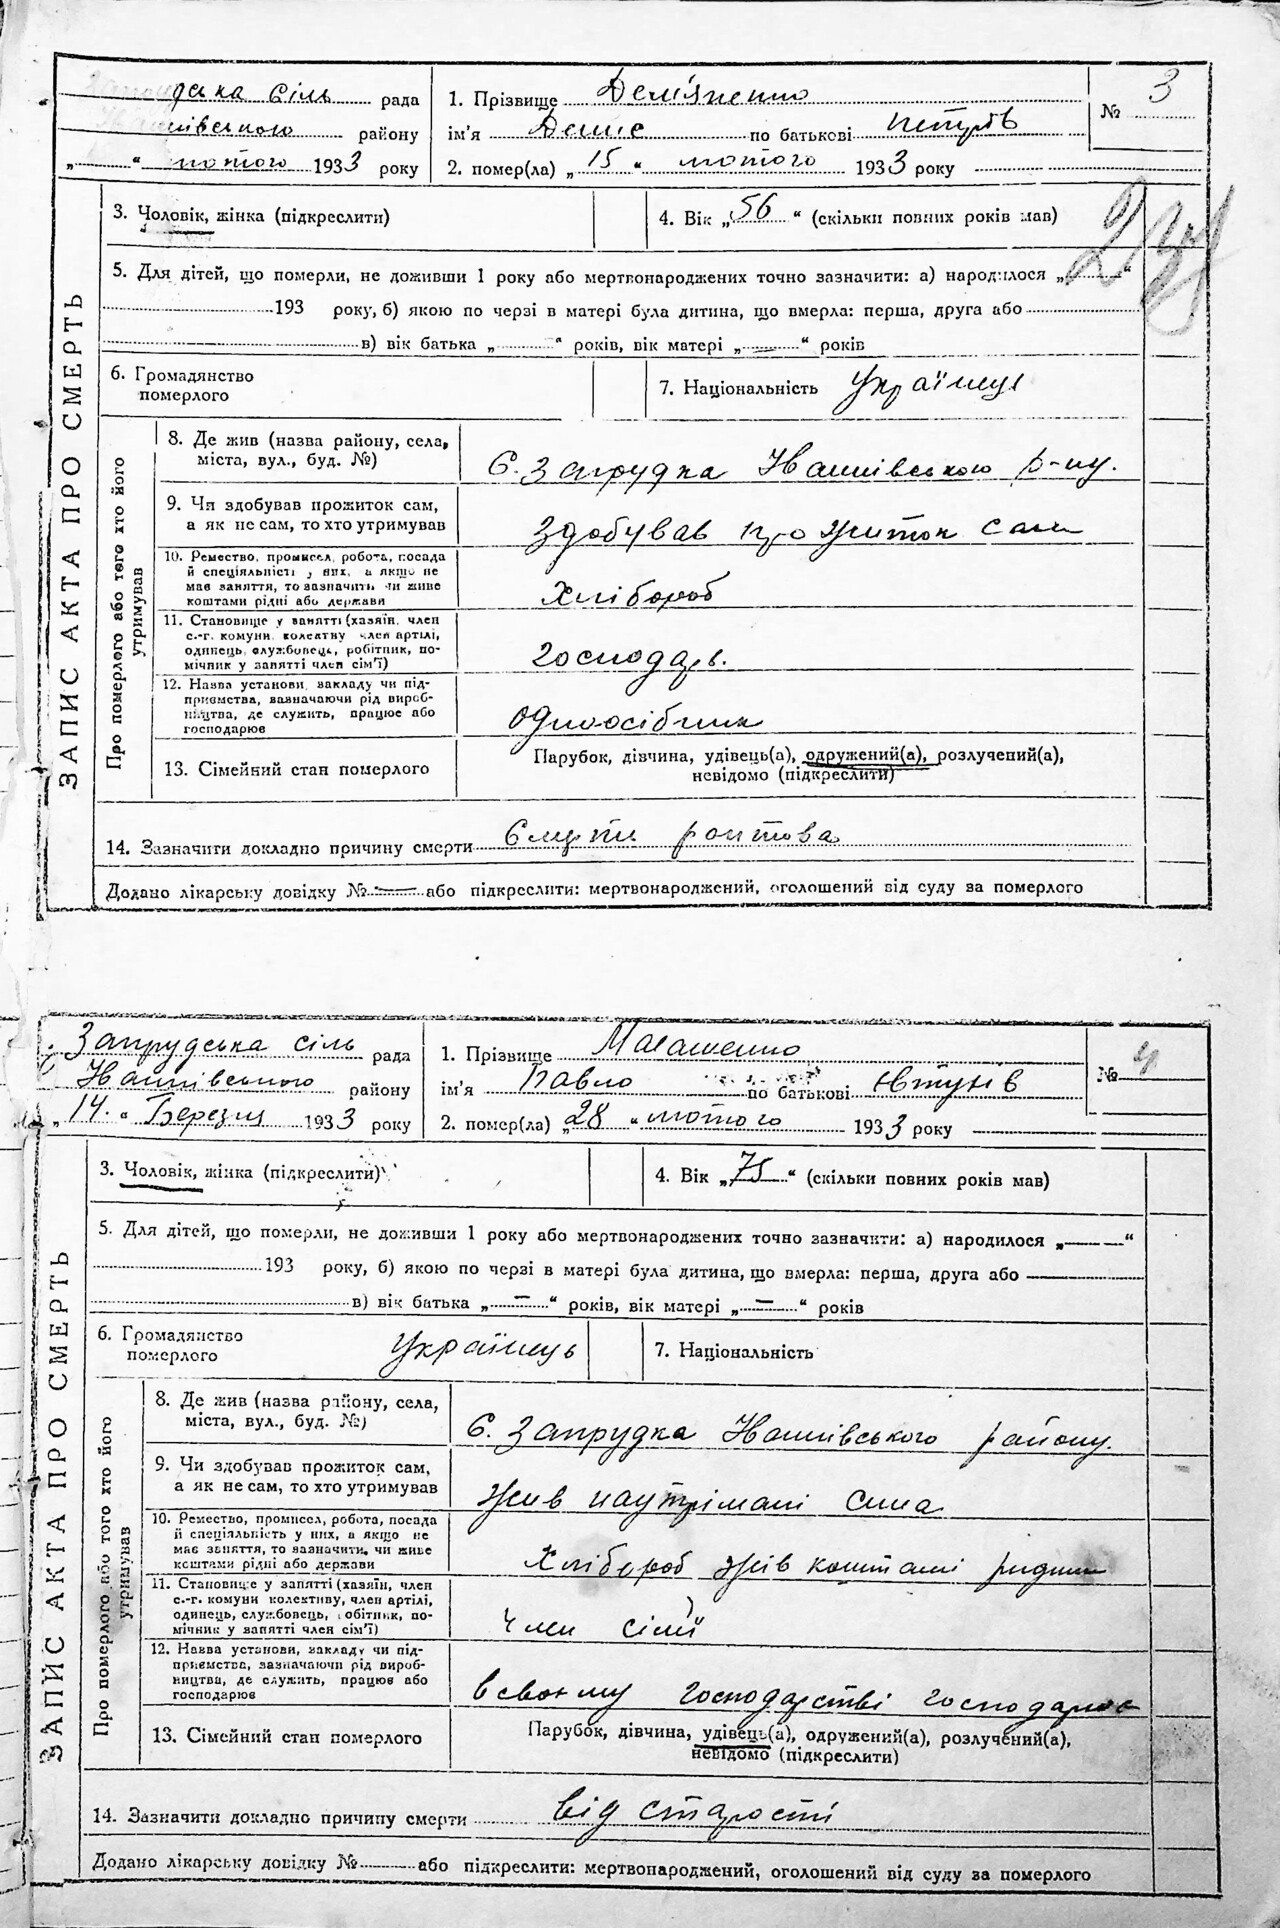 Запрудська сіль рада
Івашківського району
„ “ лютого 1933 року
1. Прізвище Дем'яненко
ім'я Денис по батькові Петрів
2. помер(ла) „15“ лютого 1933 року
№ 3
3. Чоловік, жінка (підкреслити)
4. Вік „56“ (скільки повних років мав)
5. Для дітей, що померли, не доживши 1 року або мертвонароджених точно зазначити: а) народилося „ “
193 року, б) якою по черзі в матері була дитина, що вмерла: перша, друга або
в) вік батька „ “ років, вік матері „—“ років
6. Громадянство
померлого
7. Національність Українець
ЗАПИС АКТА ПРО СМЕРТЬ
Про померлого або того хто його
утримував
8. Де жив (назва району, села,
міста, вул., буд. №)
С. Запрудка Івашківського р-ну.
9. Чи здобував прожиток сам,
а як не сам, то хто утримував
Здобував прожиток сам
10. Ремество, промисел, робота, посада
й спеціяльність у них, а якщо не
має заняття, то зазначити чи живе
коштами рідні або держави
Хлібороб
11. Становище у занятті (хазяїн, член
с.-г. комуни, колективу член артілі,
одинець, службовець, робітник, по-
мічник у занятті член сім'ї)
господарь.
12. Назва установи, закладу чи під-
приємства, зазначаючи рід вироб-
ництва, де служить, працює або
господарює
одноосібник
13. Сімейний стан померлого
Парубок, дівчина, удівець(а), одружений(а), розлучений(а),
невідомо (підкреслити)
14. Зазначити докладно причину смерти Смерти раптова
Додано лікарську довідку № — або підкреслити: мертвонароджений, оголошений від суду за померлого
Запрудська сіль рада
Івашківського району
„14.“ Березня 1933 року
1. Прізвище Малашенко
ім'я Павло по батьковіЮвтухів
2. помер(ла) „28“ лютого 1933 року
№ 4
3. Чоловік, жінка (підкреслити)
4. Вік „75“ (скільки повних років мав)
5. Для дітей, що померли, не доживши 1 року або мертвонароджених точно зазначити: а) народилося „——“
193 року, б) якою по черзі в матері була дитина, що вмерла: перша, друга або
в) вік батька „—“ років, вік матері „—“ років
6. Громадянство
померлого
Українець
7. Національність
ЗАПИС АКТА ПРО СМЕРТЬ
Про померлого або того хто його
утримував
8. Де жив (назва району, села,
міста, вул., буд. №)
С. Запрудка Івашківського району.
9. Чи здобував прожиток сам,
а як не сам, то хто утримував
жив наутрімані сина
10. Ремество, промисел, робота, посада
й спеціяльність у них, а якщо не
має заняття, то зазначити, чи живе
коштами рідні або держави
Хлібороб жив коштамі
11. Становище у занятті (хазяїн, член
с.-г. комуни колективу, член артілі,
одинець, службовець, робітник, по-
мічник у занятті член сім'ї)
Член сімї
12. Назва установи, закладу чи під-
приємства, зазначаючи рід вироб-
ництва, де служить, працює або
господарює
всвоєму господарстві господарює
13. Сімейний стан померлого
Парубок, дівчина, удівець(а), одружений(а), розлучений(а),
невідомо (підкреслити)
14. Зазначити докладно причину смерти Від старості
Додано лікарську довідку № або підкреслити: мертвонароджений, оголошений від суду за померлого